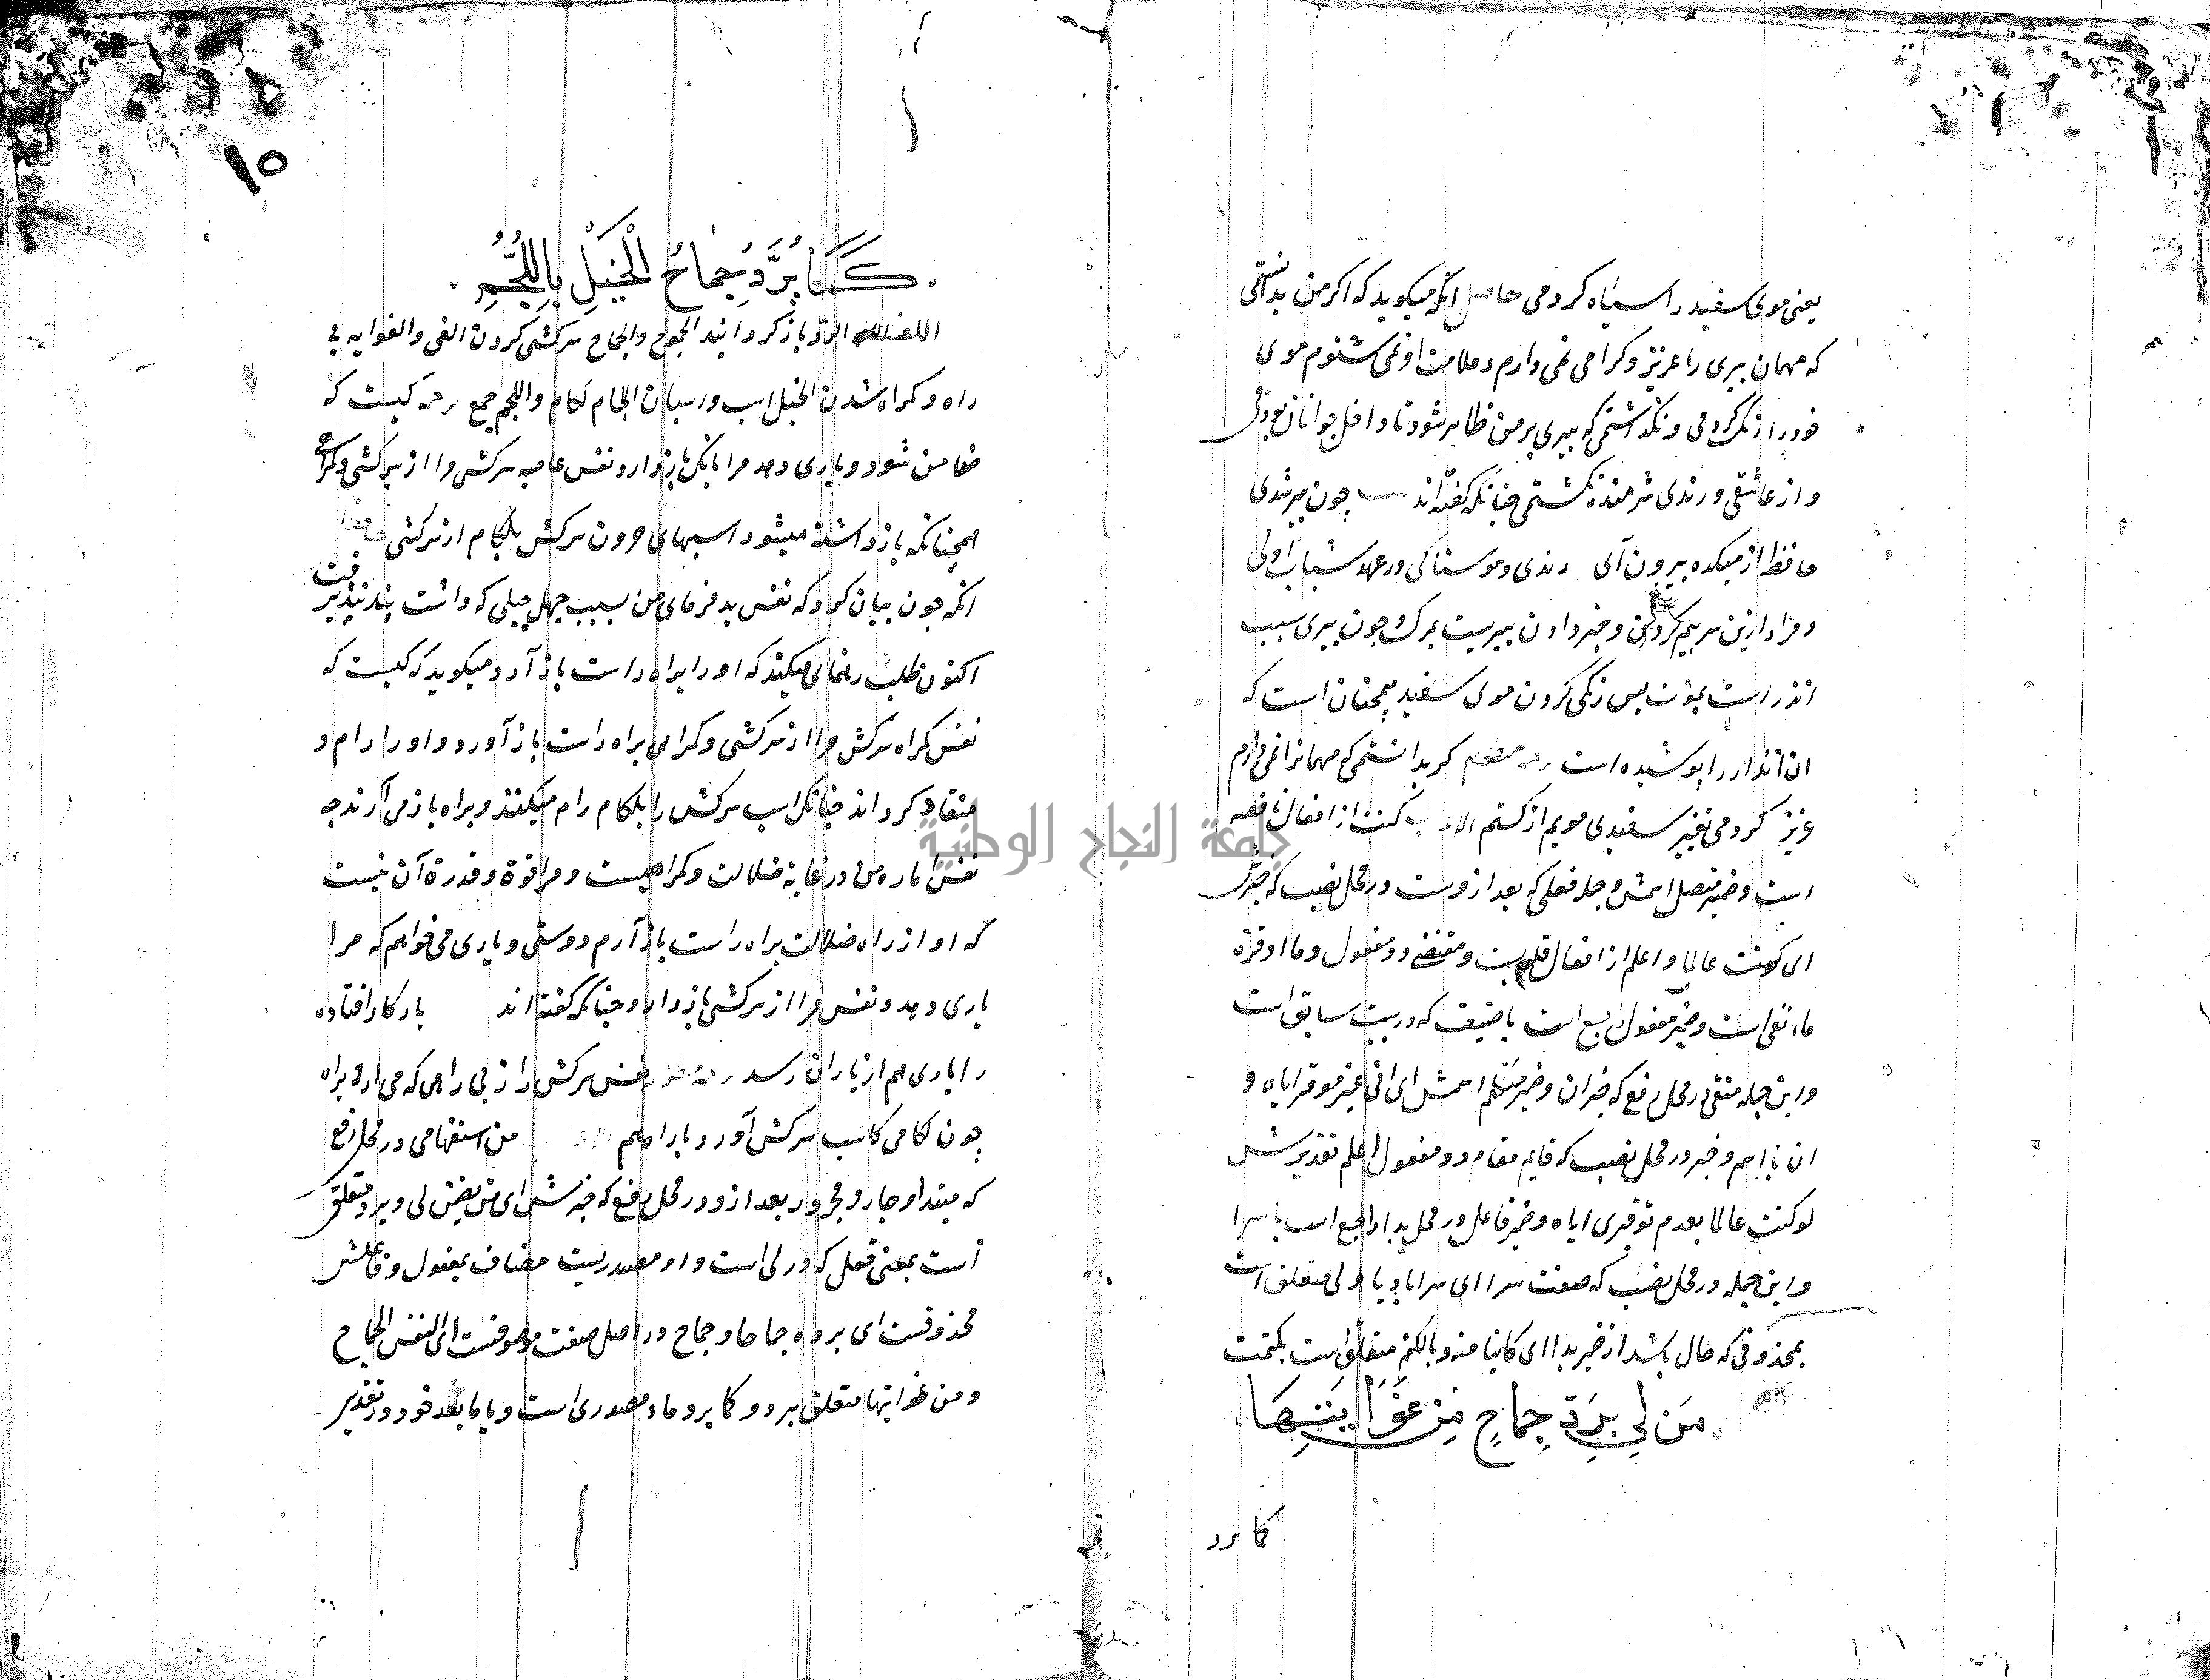 یعنی موی سفید را سیاه کردمی حاصل انکه میکوید که اکر من بدانستمی
که مهمان پیری را عزیز و کرامی نمی دارم و ملامت او نمی شنوم موی
خود را رنک کردمی و نکذاشتمی که پیری بر من ظاهر شود تا داخل جوانان بودمی
و از عاشقی و رندی شرمنده نکشتمی چنانکه کفته اند چون پیر شدی
حافظ از میکده بیرون آی رندی و هوسناکی در عهد شباب اولی
و مراد ازین سر بیم کردن و خبر دادن پیریست بمرک و چون پیری سبب
انذار است بموت پس رنکی کردن موی سفید همچنان است که
ان انذار را پوشیده است ترجمه منظوم کر بدانستمی که مهمانرا نمی دارم
عزیز کردمی تغییر سفیدی مویم از کتم الاعراب کنت از افعال ناقصه
است و ضمیر متصل اسمش و جمله فعلی که بعد ازوست در محل نصب که خبرش
ای کنت عالما و اعلم از افعال قلوبست و مقتضی دو مفعول و ما اوقره
ماء نفی است و ضمیر مفعول راجع است با ضیف که در بیت سابق است
و این جمله منفی در محل رفع که خبر ان و ضمیر متکلم اسمش ای انی غیر موقر ایاه و
ان با اسم و خبر در محل نصب که قایم مقام دو مفعول اعلم تقدیرش
لو کنت عالما بعدم توقیری ایاه و ضمیر فاعل در محل بدا راجع است با سرا
و این جمله در محل نصب که صفت سرا ای سرا بادیا و لی متعلق است
بمحذوفی که حال باشد از ضمیر بدا ای کاینا منه و بالکتم متعلق است بکتمت
مَن لِي بِرَدِّ جِمَاحٍ مِن غَوَايَتِهَا
کما یرد
۱۵
كَمَا يُرَدُّ جِمَاحُ الْخَيْلِ بِاللُّجُمِ
اللغة الرد باز کردانیدن الجموح والجماح سرکشی کردن الغی والغوایه بی
راه و کمراه شدن الخیل اسب و اسبان اللجام لکام واللجم جمع ترجمه کیست که
ضامن شود و یاری دهد مرا بانکه باز دارد نفس عاصیه سرکش مرا از سرکشی و کمراهی
همچنانکه باز داشته میشود اسبهای حرون سرکش بلکام از سرکشی
انکه چون بیان کرد که نفس بد فرمای من بسبب جهل جبلی که داشت پند نپذیرفت
اکنون طلب رهنمائی میکند که او را براه راست باز آرد و میکوید که کیست که
نفس کمراه سرکش مرا از سرکشی و کمراهی براه راست باز آورد و او را رام و
منقاد کرداند چنانکه اسب سرکش را بلکام رام میکنند و براه باز می آرند چه
نفس اماره من در غایة ضلالت و کمراهیست و مرا قوة و قدرة آن نیست
که او از راه ضلالت براه راست باز آرم دوستی و یاری می خواهم که مرا
یاری دهد و نفس مرا از سرکشی باز دارد چنانکه کفته اند بار کار افتاده
را یاری هم از یاران رسد ترجمه منظوم نفس سرکش را ز بی راهی که می آرد براه
چون لکامی کاسب سرکش آورد با راه هم الاعراب من استفهامی در محل رفع
که مبتدا و جار و مجرور بعد ازو در محل رفع که خبرش ای من یضمن لی و برد متعلق
است بمعنی فعلی که در لی است و او مصدریست مضاف بمفعول و فاعلش
محذوفست ای برده جماحا و جماح در اصل صفت موصوفست ای النفس الجماح
و من غوایتها متعلق برد و کما یرد ماء مصدری است و با ما بعد خود در تقدیر
جامعة النجاح الوطنية